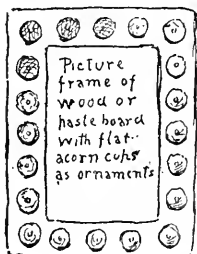 Picture
frame of
wood or
paste board
with flat
acorn cups
as ornaments